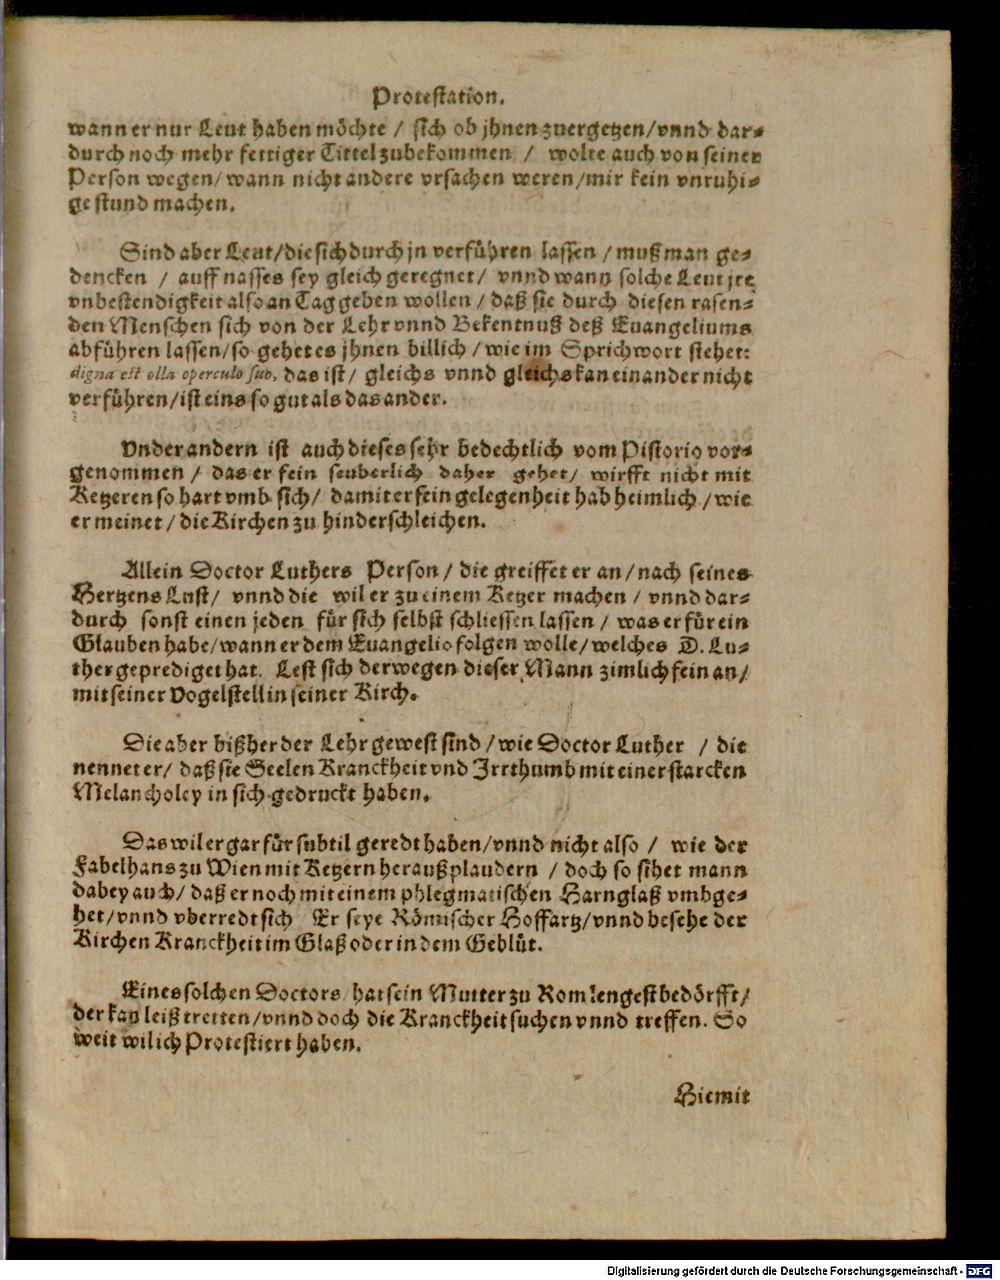 Protestation.
wann er nur Leut haben möchte / sich ob jhnen zuergetzen / vnnd dar-
durch noch mehr fettiger Tittel zubekommen / wolte auch von seiner
Person wegen / wann nicht andere vrsachen weren / mir kein vnruhi-
ge stund machen.
Sind aber Leut / die sich durch jn verführen lassen / muß man ge-
dencken / auff nasses sey gleich geregnet / vnnd wann solche Leut jre
vnbestendigkeit also an Tag geben wollen / daß sie durch diesen rasen-
den Menschen sich von der Lehr vnnd Bekentnuß deß Euangeliums
abführen lassen / so gehet es jhnen billich / wie im Sprichwort stehet:
digna est olla operculo suo, das ist / gleichs vnnd gleichs kan einander nicht
verführen / ist eins so gut als das ander.
Vnder andern ist auch dieses sehr bedechtlich vom Pistorio vor-
genommen / das er fein seuberlich daher gehet / wirfft nicht mit
Ketzeren so hart vmb sich / damit er fein gelegenheit hab heimlich / wie
er meinet / die Kirchen zu hinderschleichen.
Allein Doctor Luthers Person / die greiffet er an / nach seines
Hertzens Lust / vnnd die wil er zu einem Ketzer machen / vnnd dar-
durch sonst einen jeden für sich selbst schliessen lassen / was er für ein
Glauben habe / wann er dem Euangelio folgen wolle / welches D. Lu-
ther geprediget hat. Lest sich derwegen dieser Mann zimlich fein an /
mit seiner Vogelstell in seiner Kirch.
Die aber bißher der Lehr gewest sind / wie Doctor Luther / die
nennet er / daß sie Seelen Kranckheit vnd Jrrthumb mit einer starcken
Melancholey in sich gedruckt haben.
Das wil er gar für subtil geredt haben / vnnd nicht also / wie der
Fabelhans zu Wien mit Ketzern heraußplaudern / doch so sihet mann
dabey auch / daß er noch mit einem phlegmatischen Harnglaß vmbge-
het / vnnd vberredt sich Er seye Römischer Hoffartz / vnnd besehe der
Kirchen Kranckheit im Glaß oder in dem Geblüt.
Eines solchen Doctors hat sein Mutter zu Rom lengest bedörfft /
der kan leiß tretten / vnnd doch die Kranckheit suchen vnnd treffen. So
weit wil ich Protestiert haben.
Hiemit
Digitalisierung gefördert durch die Deutsche Forschungsgemeinschaft - DFG